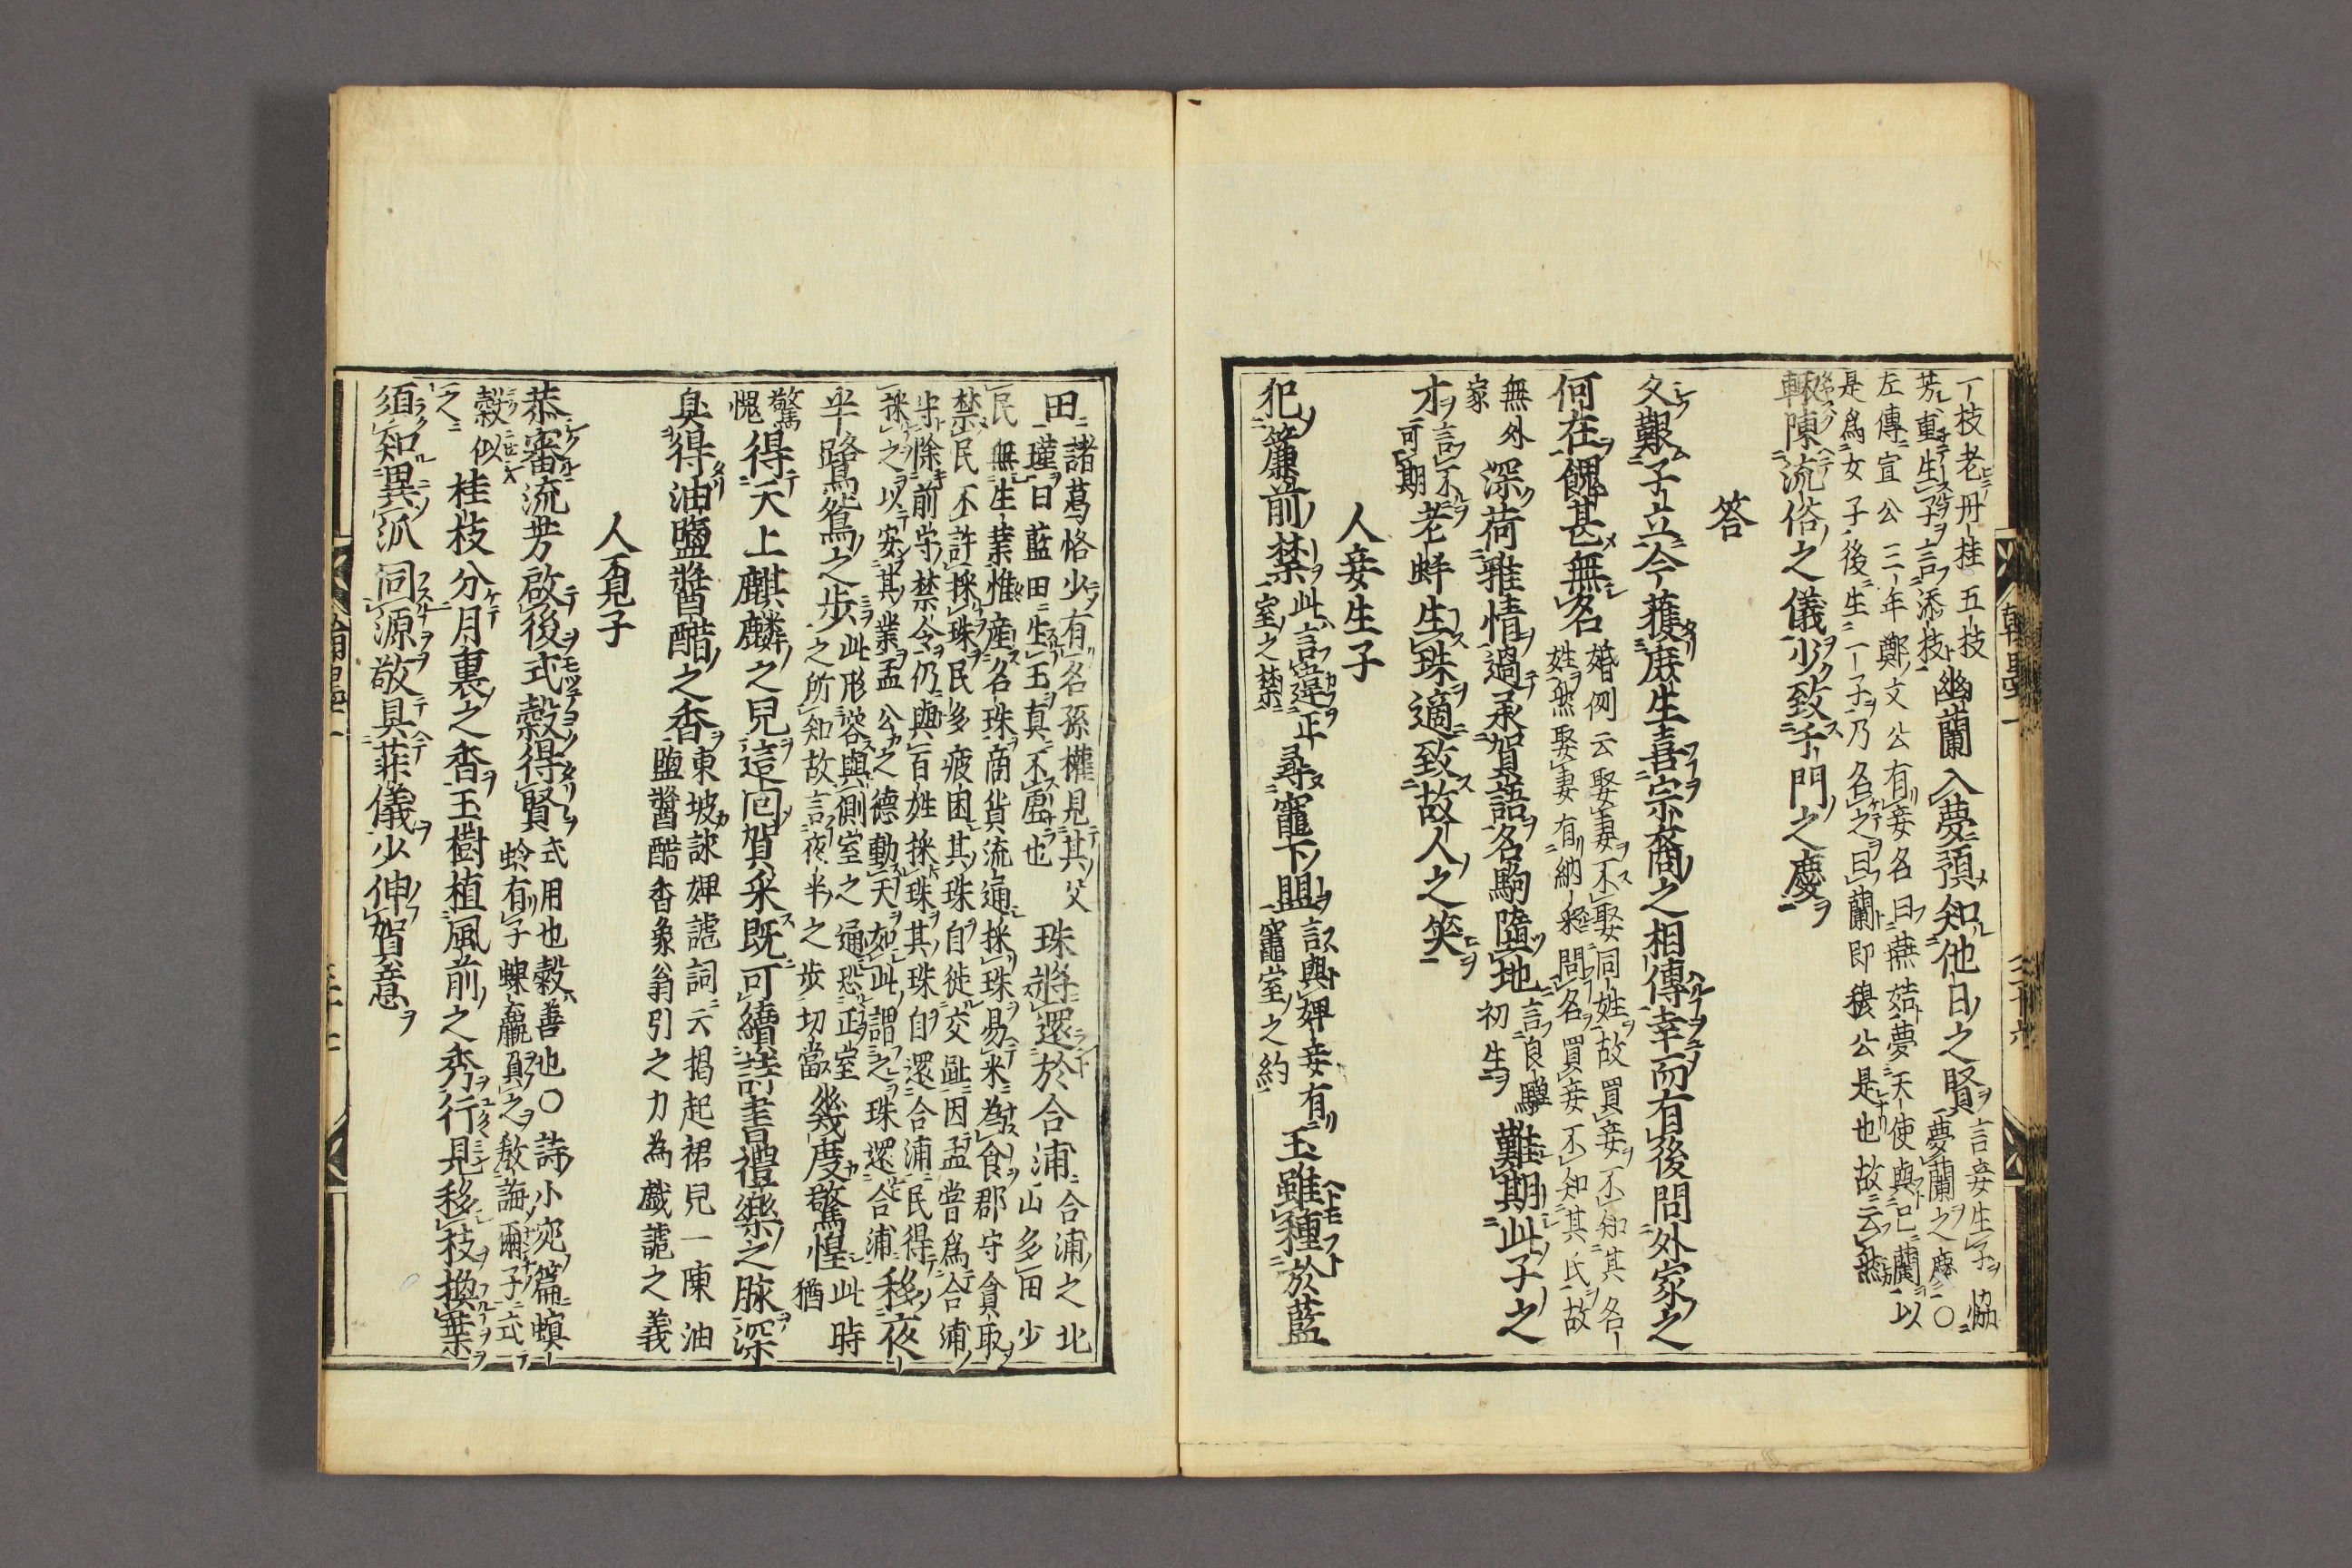 一枝老丹桂五枝
芳重生子言添枝
幽蘭入夢預知他日之賢
言妾生子協
夢蘭之慶○
左傳宣公三年鄭文公有妾名曰燕姞夢天使與己蘭以
是爲女子後生一子乃名之曰蘭即穆公是也故云然
輙陳流俗之儀少致于門之慶
答
久艱子立今蒦庶生喜宗裔之相傳幸而有後問外家之
何在餽甚無名
婚例云娶妻不娶同姓故買妾不知其名
姓然娶妻有納釆問名買妾不知其氏故
無外
家
深荷雅情過承賀語名駒墮地
言良驥
初生
難期此子之
才言不
可期
老蚌生珠適致故人之笑
人妾生子
犯簾前禁
此言違正
室之禁
尋竈下盟
言與婢妾有
竈室之約
玉雖種於藍
田
諸葛恪少有名孫權見其父
瑾曰藍田生玉真不虛也
珠將還於合浦
合浦之北
山多田少
民無生業惟産名珠商貨流通採珠易米為食郡守貪取
禁民不許採珠民多疲困其珠自徙交趾因孟嘗爲合浦
守除前守禁令仍與百姓採珠其珠自還合浦民得
採之以安其業孟公之德動天如此謂之珠還合浦
移夜
半鷺鴛之步
此形容與側室之通恐正室
之所知故言夜半之步切當
幾度驚惶
此時
猶
驚
愧
得天上麒麟之兒這囘賀釆既可續詩書禮樂之脉深
臭得油鹽醬醋之香
東坡詠婢謔詞云揭起裙兒一陳油
鹽醬醋香象翁引之力為戲謔之義
人覔子
恭審流芳啟後式穀得賢
式用也穀善也○詩小宛篇螟
蛉有子蜾蠃負之敎誨爾子式
穀似
之
桂枝分月裏之香玉樹植風前之秀行見移枝換葉
須知異派同源敬具菲儀少伸賀意